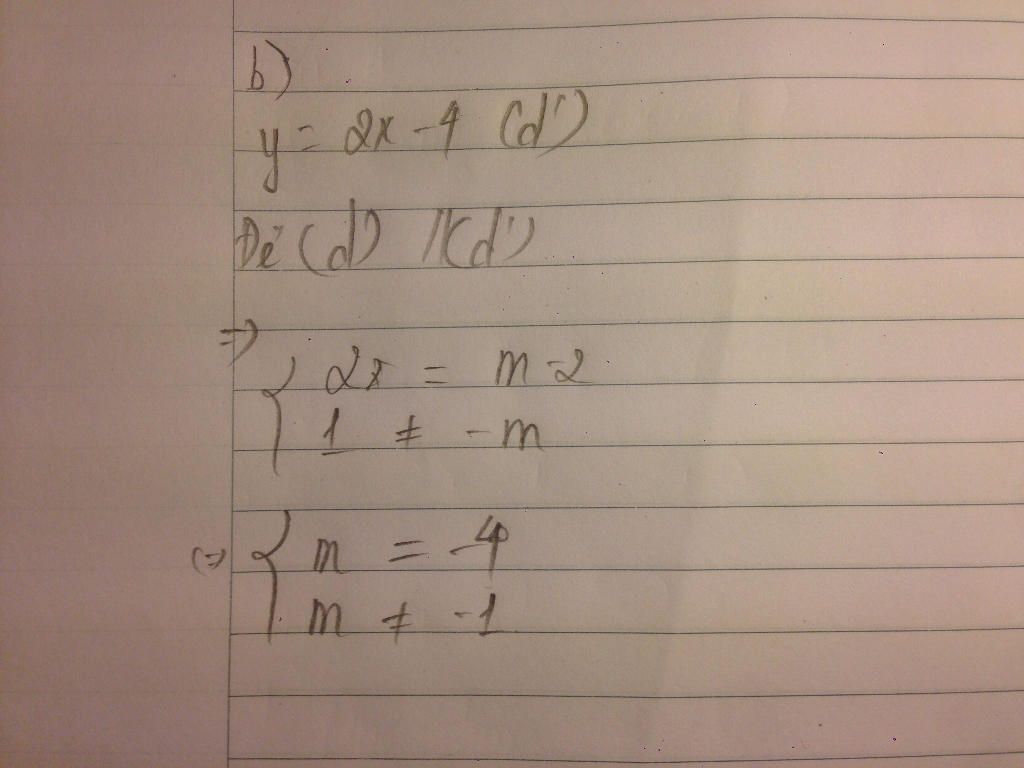 b)
y = 2x - 4 (d')
Để (d) // (d')
=>
{ 2x = m - 2
1 ≠ -m
(=) { m = 4
m ≠ -1